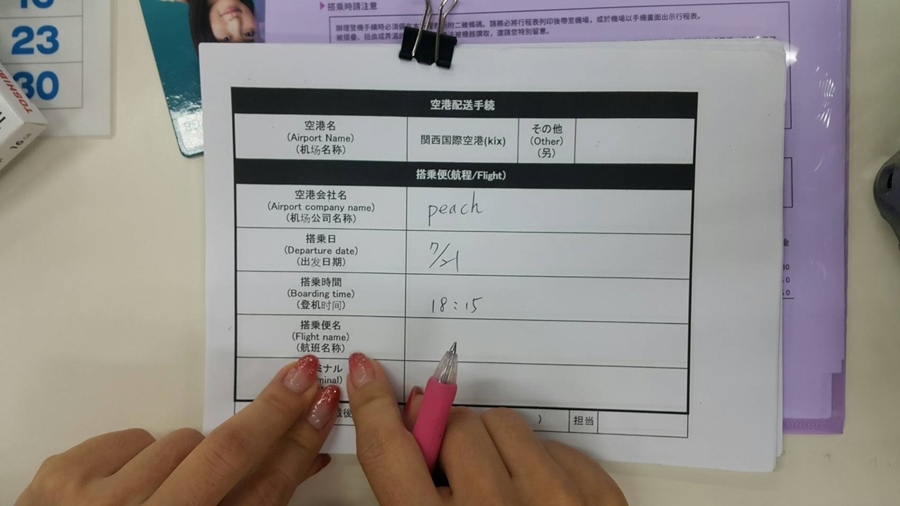 ▶搭乘時請注意
23
30
TOSHIBA
空港配送手続
空港名
(Airport Name)
(机场名称)
関西国際空港(kix)
その他
(Other)
(另)
搭乗便(航程/Flight)
空港会社名
(Airport company name)
(机场公司名称)
peach
搭乗日
(Departure date)
(出发日期)
7/21
搭乗時間
(Boarding time)
(登机时间)
18:15
搭乗便名
(Flight name)
(航班名称)
ミナル
minal)
)
担当